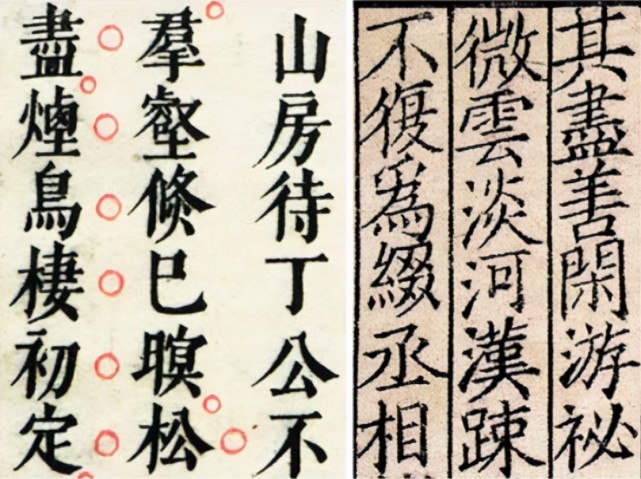 其盡善閑游祕
微雲淡河漢踈
不復爲綴丞相
山房待丁公不
羣壑倐巳暝松
盡煙鳥棲初定